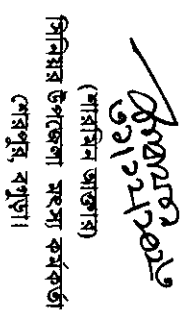 (শারমিন আক্তার)
সিনিয়র উপজেলা মৎস্য কর্মকর্তা
শেরপুর, বগুড়া।